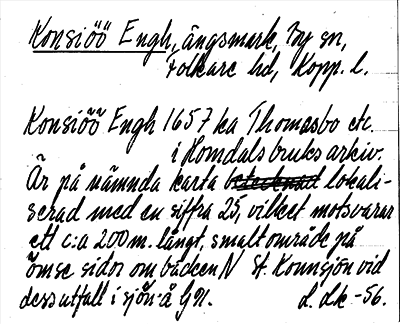 Konsiöö Engh, ängsmark, By sn,
Folkare hd, Kopp. l.
Konsiöö Engh 1657 ka Thomasbo etc.
i Horndals bruks arkiv.
Är på nämnda karta betecknad lokali-
serad med en siffra 25, vilket motsvarar
ett c:a 200 m. långt, smalt område på
ömse sidor om bäcken N St. Konnsjön vid
dess utfall i sjön å GN.
L. Lk -56.